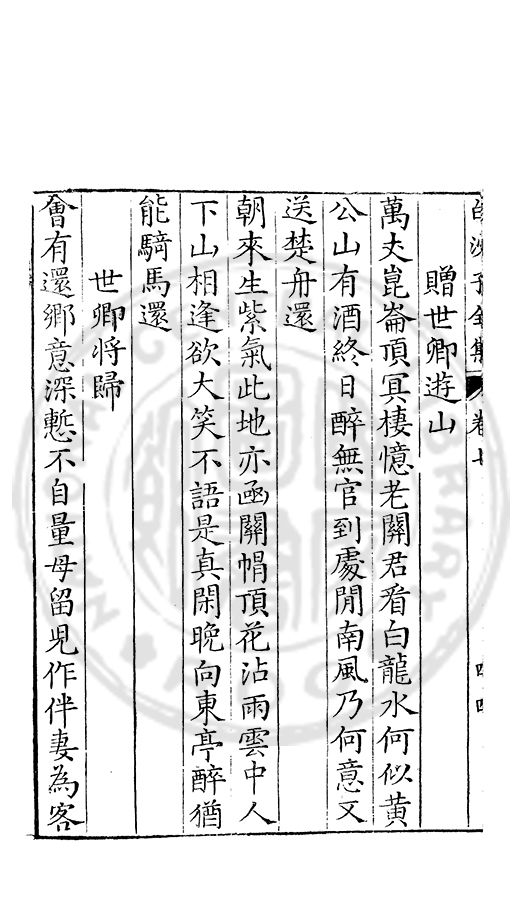 白沙子全集 卷七 四四
贈世卿遊山
萬丈崑崙頂冥棲憶老關君看白龍水何似黃
公山有酒終日醉無官到處閒南風乃何意又
送楚舟還
朝來生紫氣此地亦凾關帽頂花沾雨雲中人
下山相逢欲大笑不語是真閑晚向東亭醉猶
能騎馬還
世卿將歸
會有還鄉意深慙不自量母留兒作伴妻為客